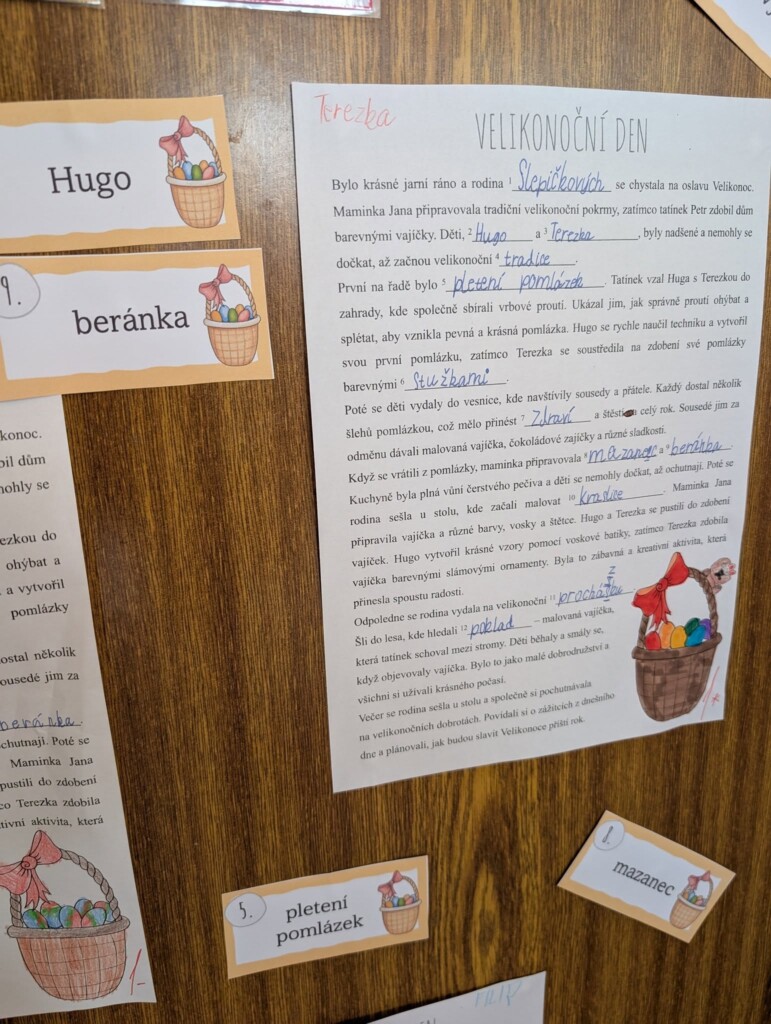 Hugo
9.
beránka
Terezka
VELIKONOČNÍ DEN
Bylo krásné jarní ráno a rodina ¹ Slepičkových se chystala na oslavu Velikonoc.
Maminka Jana připravovala tradiční velikonoční pokrmy, zatímco tatínek Petr zdobil dům
barevnými vajíčky. Děti, ² Hugo a ³ Terezka, byly nadšené a nemohly se
dočkat, až začnou velikonoční ⁴ tradice.
První na řadě bylo ⁵ pletení pomlázek. Tatínek vzal Huga s Terezkou do
zahrady, kde společně sbírali vrbové proutí. Ukázal jim, jak správně proutí ohýbat a
splétat, aby vznikla pevná a krásná pomlázka. Hugo se rychle naučil techniku a vytvořil
svou první pomlázku, zatímco Terezka se soustředila na zdobení své pomlázky
barevnými ⁶ stužkami.
Poté se děti vydaly do vesnice, kde navštívily sousedy a přátele. Každý dostal několik
šlehů pomlázkou, což mělo přinést ⁷ zdraví a štěstí celý rok. Sousedé jim za
odměnu dávali malovaná vajíčka, čokoládové zajíčky a různé sladkosti.
Když se vrátili z pomlázky, maminka připravovala ⁸ mazanec a ⁹ beránka.
Kuchyně byla plná vůní čerstvého pečiva a děti se nemohly dočkat, až ochutnají. Poté se
rodina sešla u stolu, kde začali malovat ¹⁰ kraslice. Maminka Jana
připravila vajíčka a různé barvy, vosky a štětce. Hugo a Terezka se pustili do zdobení
vajíček. Hugo vytvořil krásné vzory pomocí voskové batiky, zatímco Terezka zdobila
vajíčka barevnými slámovými ornamenty. Byla to zábavná a kreativní aktivita, která
přinesla spoustu radosti.
Odpoledne se rodina vydala na velikonoční ¹¹ procházku
Šli do lesa, kde hledali ¹² poklad – malovaná vajíčka,
která tatínek schoval mezi stromy. Děti běhaly a smály se,
když objevovaly vajíčka. Bylo to jako malé dobrodružství a
všichni si užívali krásného počasí.
Večer se rodina sešla u stolu a společně si pochutnávala
na velikonočních dobrotách. Povídali si o zážitcích z dnešního
dne a plánovali, jak budou slavit Velikonoce příští rok.
1*
konoc.
bil dům
nohly se
ezkou do
ohýbat a
a vytvořil
pomlázky
dostal několik
ousedé jim za
beránka.
chutnají. Poté se
Maminka Jana
pustili do zdobení
co Terezka zdobila
tivní aktivita, která
1-
5.
pletení
pomlázek
8.
mazanec